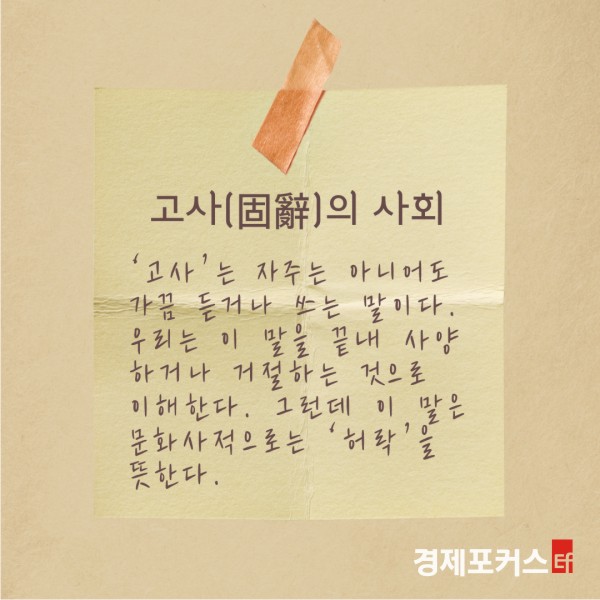 고사(固辭)의 사회
‘고사’는 자주는 아니어도
가끔 듣거나 쓰는 말이다.
우리는 이 말을 끝내 사양
하거나 거절하는 것으로
이해한다. 그런데 이 말은
문화사적으로는 ‘허락’을
뜻한다.
경제포커스 Ef